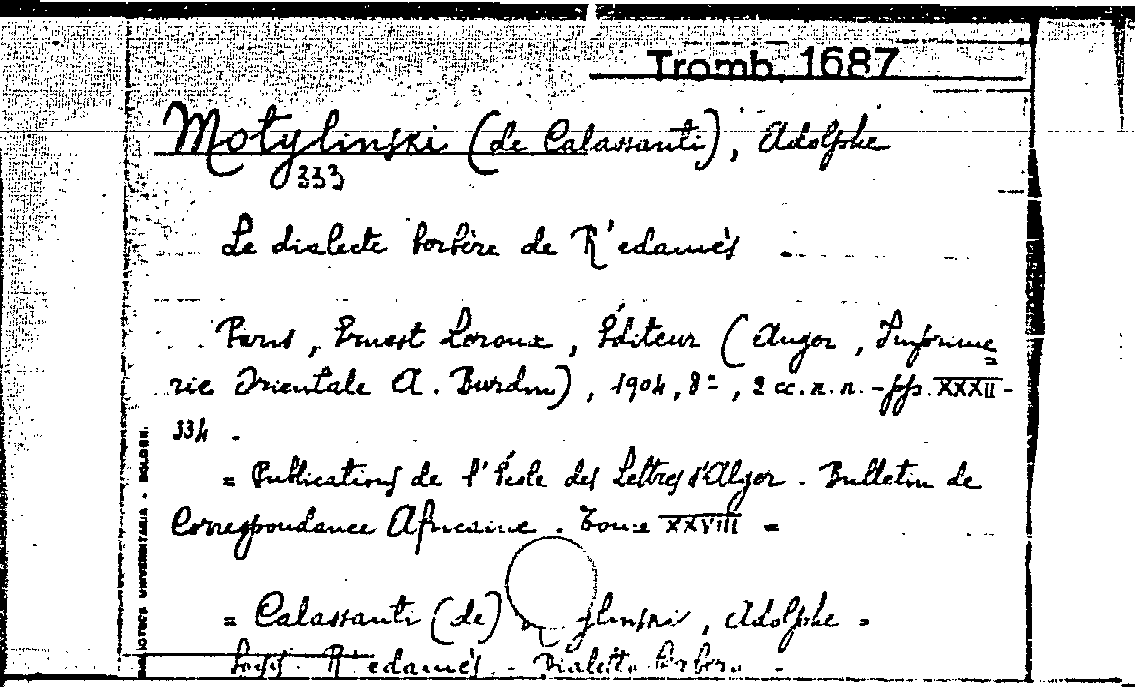 Tromb. 1687
Motylinski (de Calassanti), Adolphe
333
Le dialecte berbère de R'edamès
Paris, Ernest Leroux, Éditeur (Anger, Imprime=
rie Orientale A. Burdin), 1904, 8º, 2 cc. n. n. - pp. XXXII-
334.
= Publications de l'École des Lettres d'Alger. Bulletin de
Correspondance Africaine. Tome XXVIII =
= Calassanti (de) ylinski, Adolphe =
R'edamès - Dialetto berbero -
BIBLIOTHECA UNIVERSITARIA - BOLOGN.